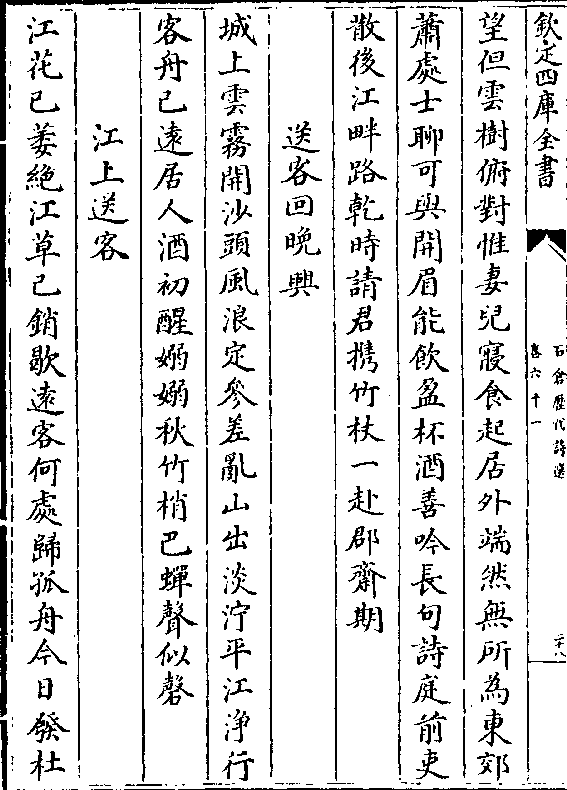 欽定四庫全書
石倉歷代詩選
卷六十一
二十八
望但雲樹俯對惟妻兒寢食起居外端然無所為東郊
蕭處士聊可與開眉能飲盈杯酒善吟長句詩庭前吏
散後江畔路乾時請君携竹杖一赴郡齋期
送客回晩興
城上雲霧開沙頭風浪定參差亂山出淡泞平江浄行
客舟已遠居人酒初醒嫋嫋秋竹梢巴蟬聲似磬
江上送客
江花已萎絶江草已銷歇遠客何處歸孤舟今日發杜